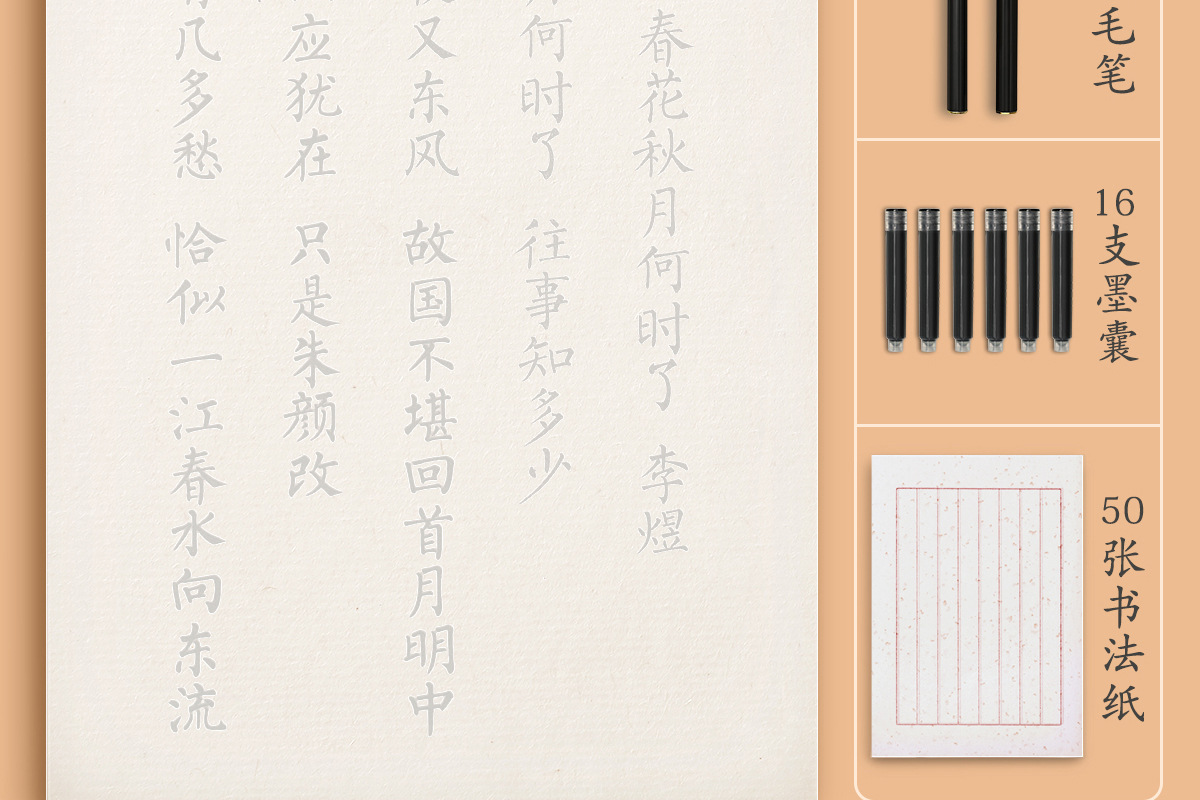 春花秋月何时了 李煜
何时了 往事知多少
又东风 故国不堪回首月明中
应犹在 只是朱颜改
几多愁 恰似一江春水向东流
毛笔
16支墨囊
50张书法纸